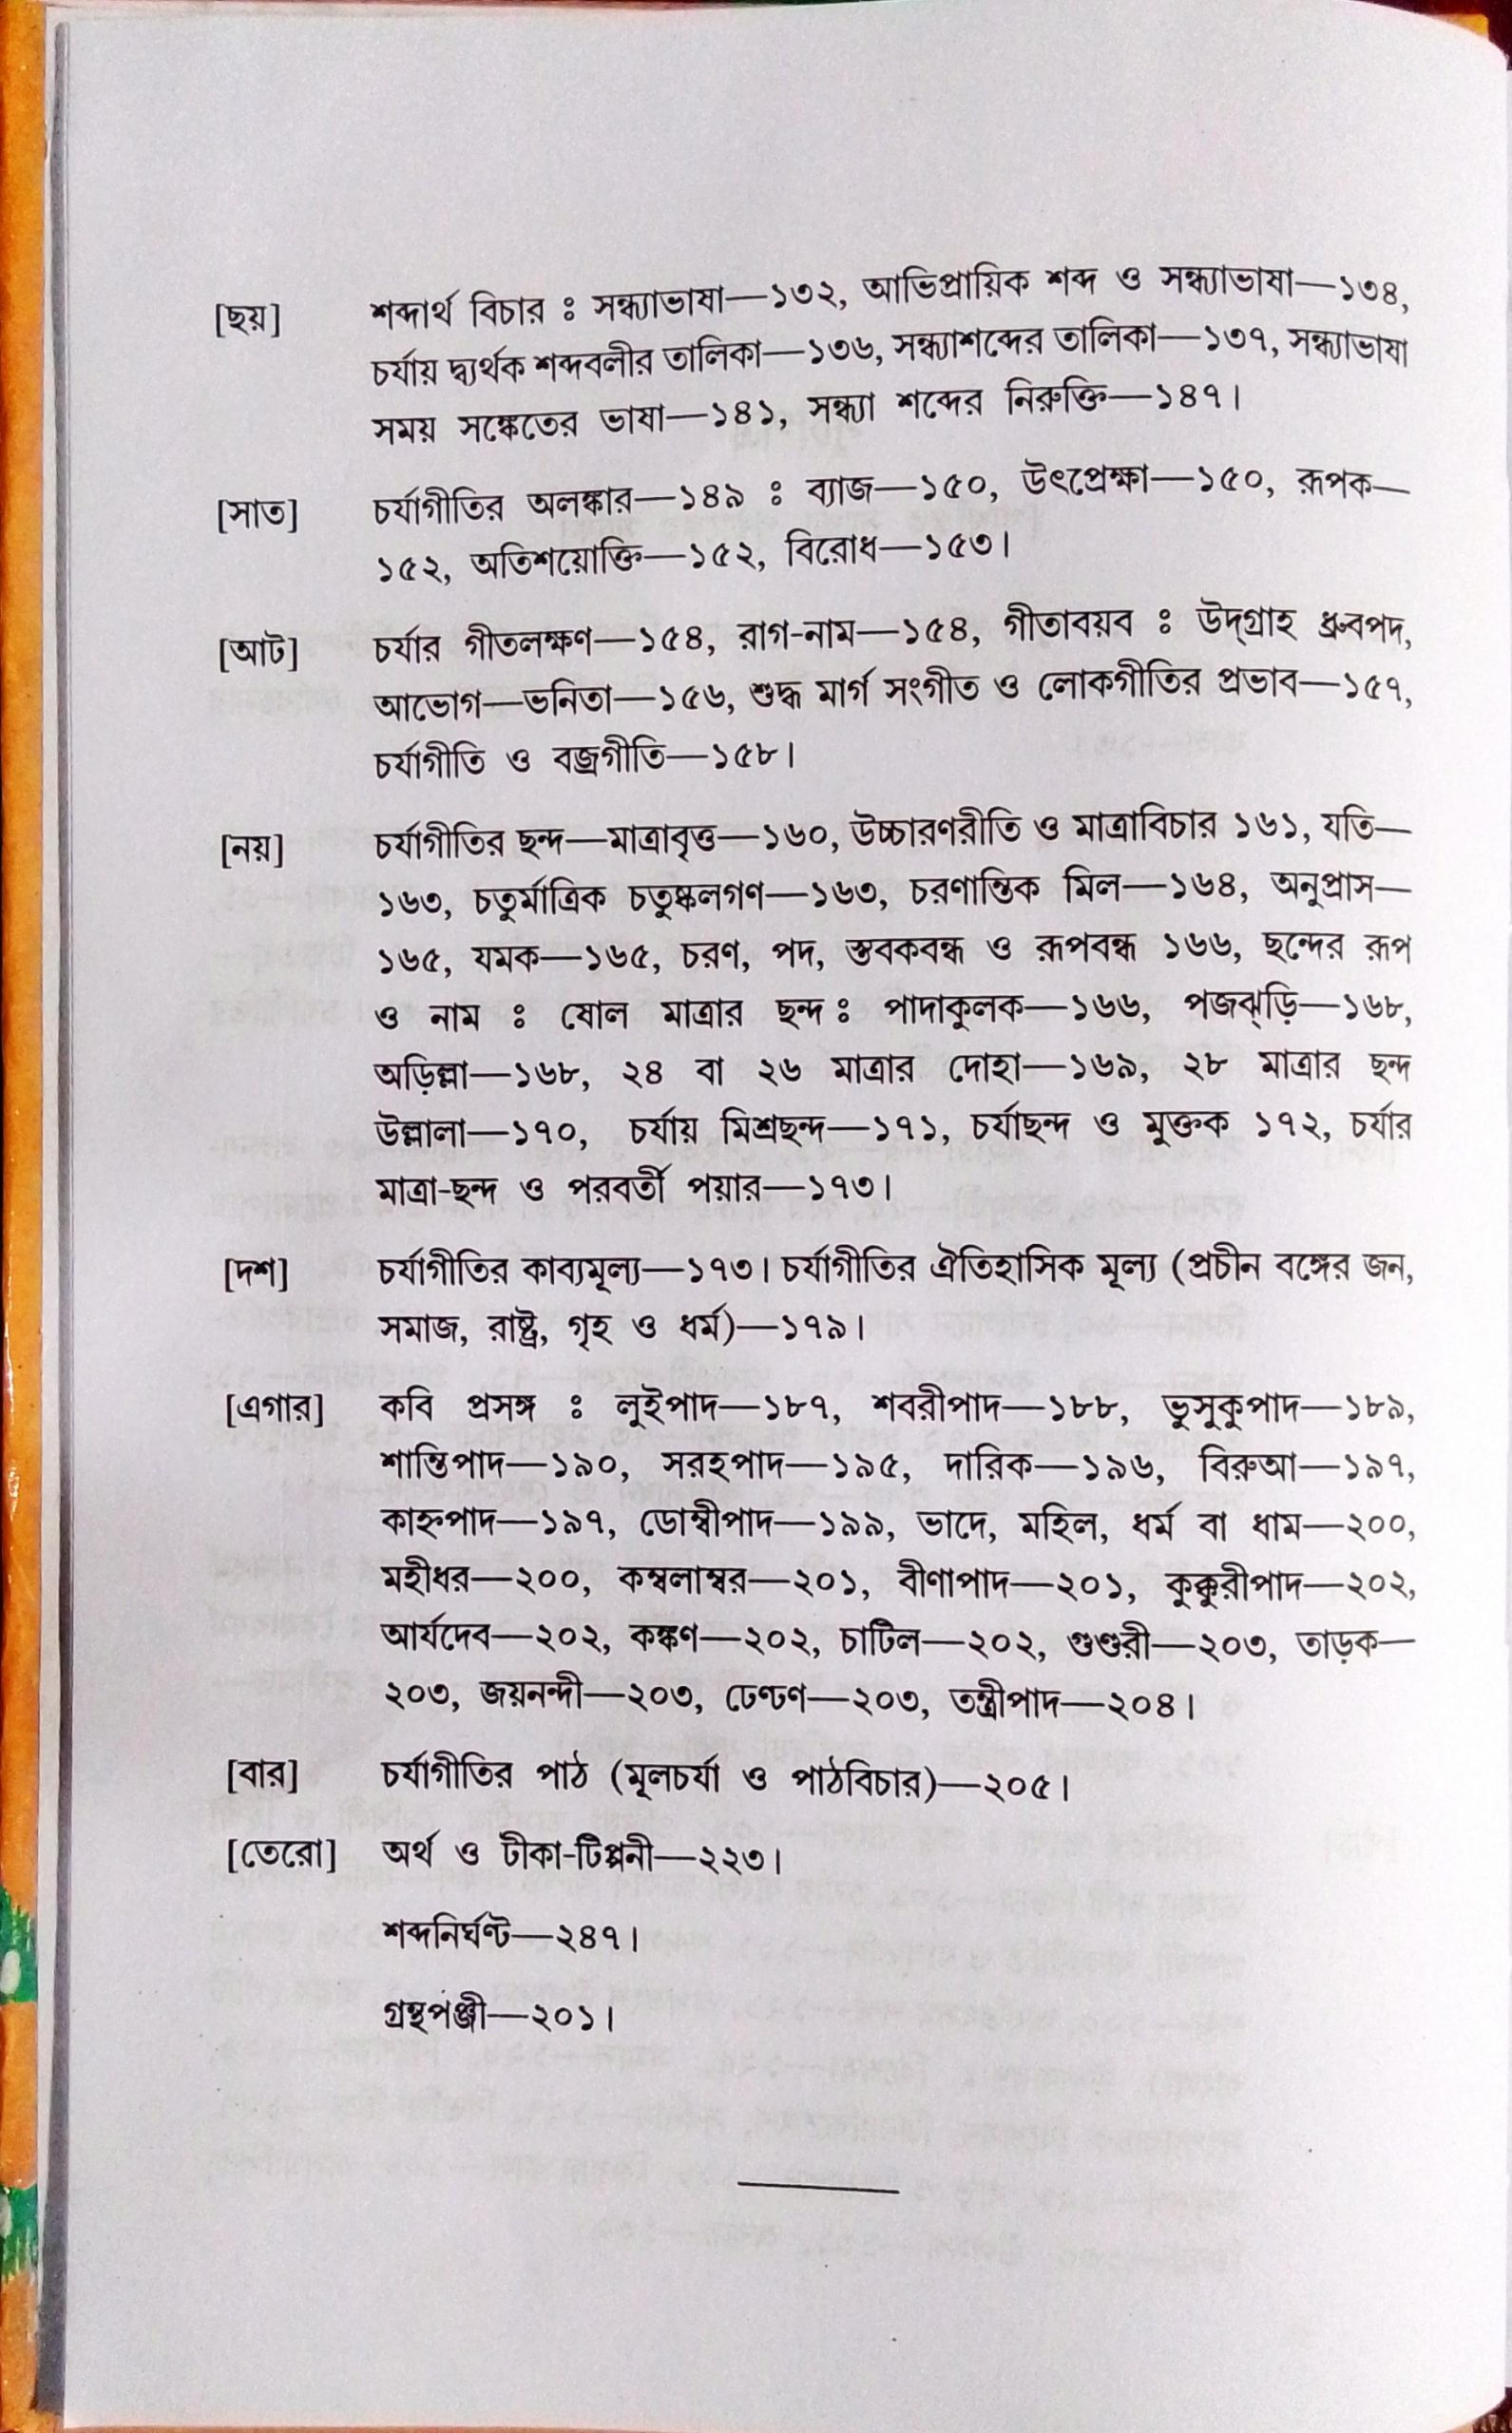 [ছয়] শব্দার্থ বিচার ঃ সন্ধ্যাভাষা—১৩২, আভিপ্রায়িক শব্দ ও সন্ধ্যাভাষা—১৩৪,
চর্যায় দ্ব্যর্থক শব্দবলীর তালিকা—১৩৬, সন্ধ্যাশব্দের তালিকা—১৩৭, সন্ধ্যাভাষা
সময় সঙ্কেতের ভাষা—১৪১, সন্ধ্যা শব্দের নিরুক্তি—১৪৭।
[সাত] চর্যাগীতির অলঙ্কার—১৪৯ ঃ ব্যাজ—১৫০, উৎপ্রেক্ষা—১৫০, রূপক—
১৫২, অতিশয়োক্তি—১৫২, বিরোধ—১৫৩।
[আট] চর্যার গীতলক্ষণ—১৫৪, রাগ-নাম—১৫৪, গীতাবয়ব ঃ উদ্‌গ্রাহ ধ্রুবপদ,
আভোগ—ভনিতা—১৫৬, শুদ্ধ মার্গ সংগীত ও লোকগীতির প্রভাব—১৫৭,
চর্যাগীতি ও বজ্রগীতি—১৫৮।
[নয়] চর্যাগীতির ছন্দ—মাত্রাবৃত্ত—১৬০, উচ্চারণরীতি ও মাত্রাবিচার ১৬১, যতি—
১৬৩, চতুর্মাত্রিক চতুষ্কলগণ—১৬৩, চরণান্তিক মিল—১৬৪, অনুপ্রাস—
১৬৫, যমক—১৬৫, চরণ, পদ, স্তবকবন্ধ ও রূপবন্ধ ১৬৬, ছন্দের রূপ
ও নাম ঃ ষোল মাত্রার ছন্দ ঃ পাদাকুলক—১৬৬, পজঝ্‌ড়ি—১৬৮,
অড়িল্লা—১৬৮, ২৪ বা ২৬ মাত্রার দোহা—১৬৯, ২৮ মাত্রার ছন্দ
উল্লালা—১৭০, চর্যায় মিশ্রছন্দ—১৭১, চর্যাছন্দ ও মুক্তক ১৭২, চর্যার
মাত্রা-ছন্দ ও পরবর্তী পয়ার—১৭৩।
[দশ] চর্যাগীতির কাব্যমূল্য—১৭৩। চর্যাগীতির ঐতিহাসিক মূল্য (প্রচীন বঙ্গের জন,
সমাজ, রাষ্ট্র, গৃহ ও ধর্ম)—১৭৯।
[এগার] কবি প্রসঙ্গ ঃ লুইপাদ—১৮৭, শবরীপাদ—১৮৮, ভুসুকুপাদ—১৮৯,
শান্তিপাদ—১৯০, সরহপাদ—১৯৫, দারিক—১৯৬, বিরুআ—১৯৭,
কাহ্নপাদ—১৯৭, ডোম্বীপাদ—১৯৯, ভাদে, মহিল, ধর্ম বা ধাম—২০০,
মহীধর—২০০, কম্বলাম্বর—২০১, বীণাপাদ—২০১, কুক্কুরীপাদ—২০২,
আর্যদেব—২০২, কঙ্কণ—২০২, চাটিল—২০২, গুণ্ডরী—২০৩, তাড়ক—
২০৩, জয়নন্দী—২০৩, ঢেণ্ঢণ—২০৩, তন্ত্রীপাদ—২০৪।
[বার] চর্যাগীতির পাঠ (মূলচর্যা ও পাঠবিচার)—২০৫।
[তেরো] অর্থ ও টীকা-টিপ্পনী—২২৩।
শব্দনির্ঘণ্ট—২৪৭।
গ্রন্থপঞ্জী—২০১।